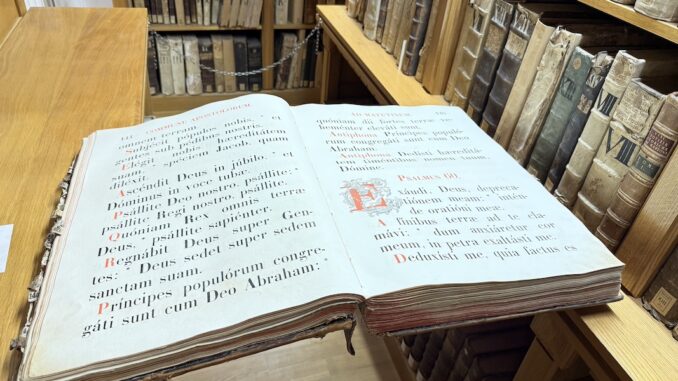 COMMUNE APOSTOLORUM.
terram nobis, *
Subjécit pópulos
gentes sub pédibus nostris.
Elégit nobis hæreditátem
suam: * spéciem Jacob, quam
diléxit.
Ascéndit Deus in júbilo, * et
Dóminus in voce tubæ.
Psállite Deo nostro, psállite: *
psállite Regi nostro, psállite.
Quóniam Rex omnis terræ
Deus, * psállite sapiénter.
Regnábit Deus super Gen-
tes: * Deus sedet super sedem
sanctam suam.
Príncipes populórum congre-
gáti sunt cum Deo Abraham: *
AD MATUTINUM
quóniam dii fortes terræ ve-
heménter eleváti sunt.
Antiphona. Príncipes populó-
rum congregáti sunt cum Deo
Abraham.
Antiphona. Dedísti hæreditá-
tem timéntibus nomen tuum,
Dómine.
PSALMUS 60.
Exáudi, Deus, depreca-
tiónem meam: *
de oratióni meæ.
A fínibus terræ ad te cla-
mávi: * dum anxiarétur cor
meum, in petra exaltásti me.
Deduxísti me, quia factus es
VII